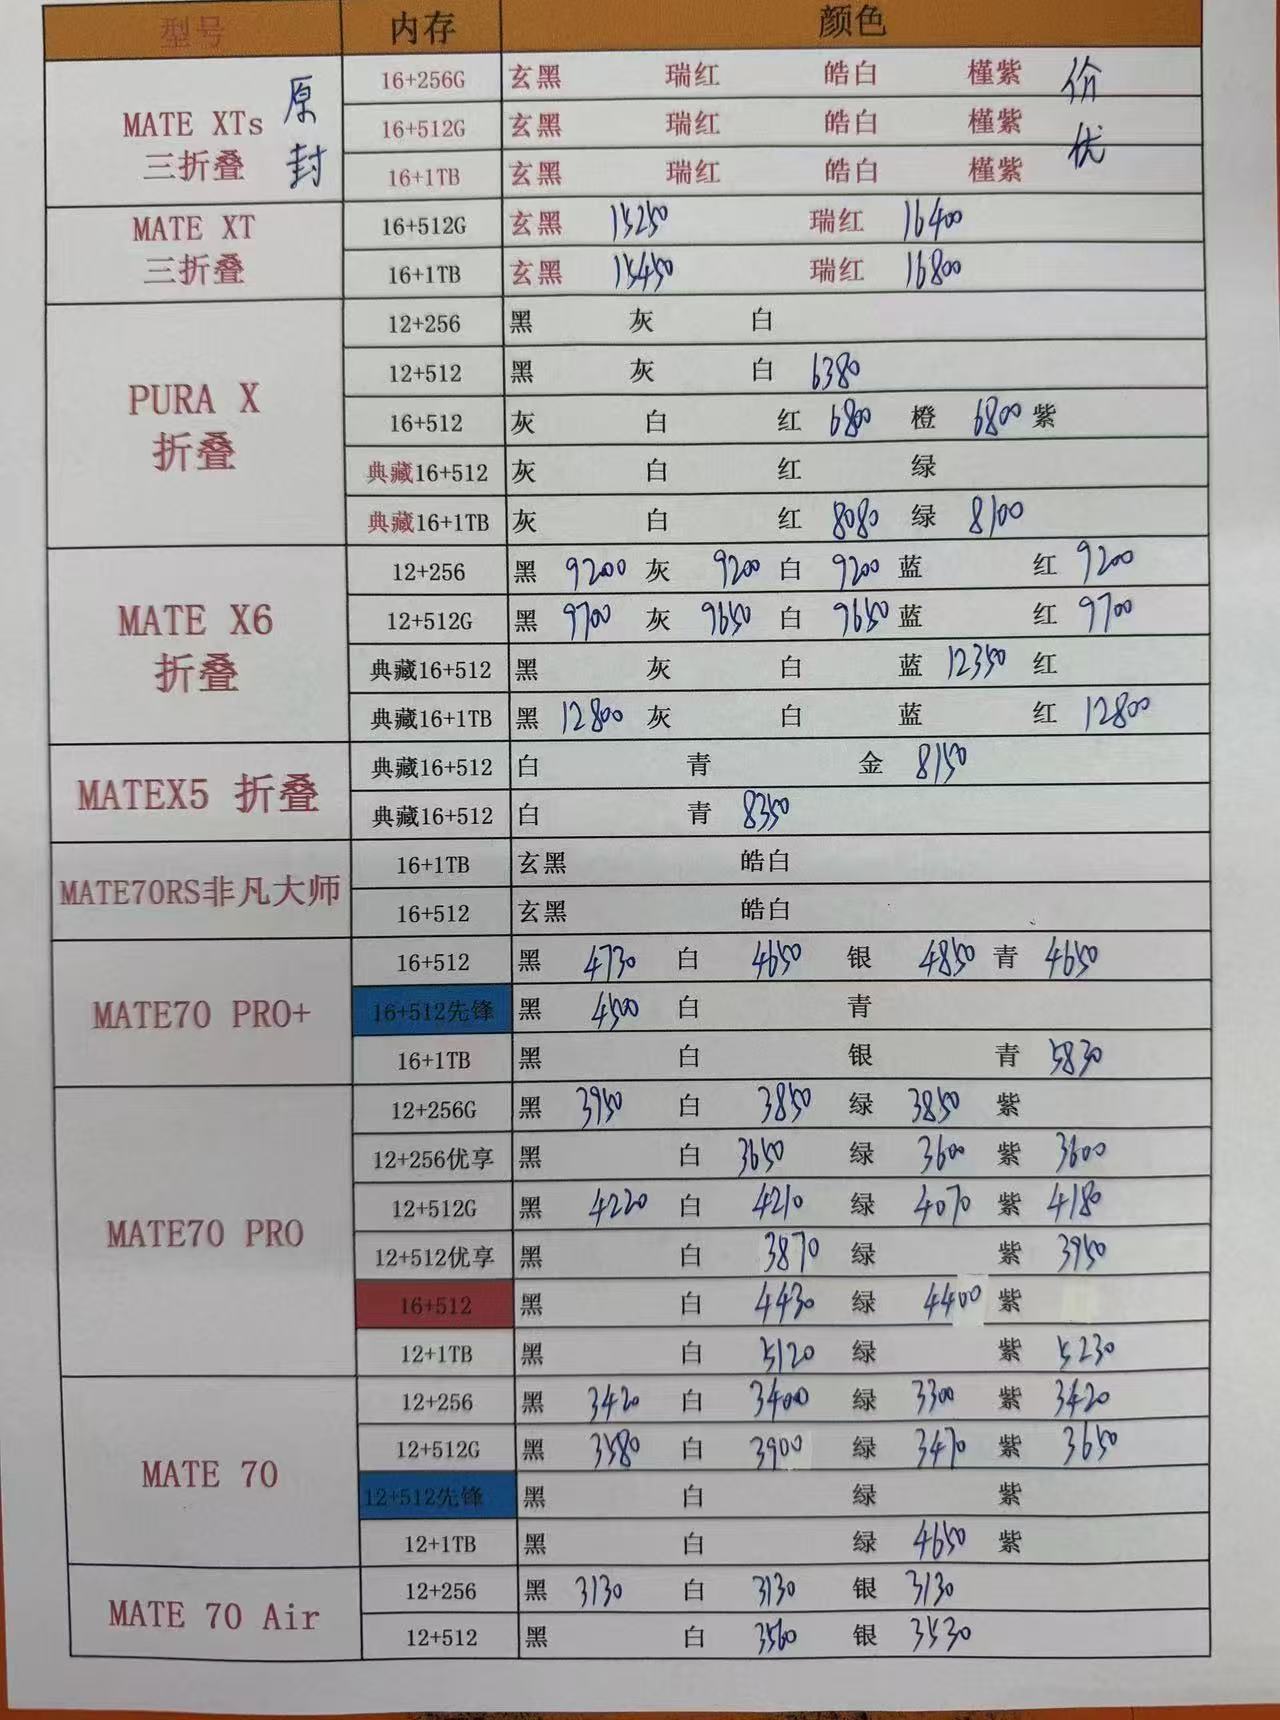 型号 内存 颜色
MATE XTs 三折叠 原封 16+256G 玄黑 瑞红 皓白 槿紫 价优
16+512G 玄黑 瑞红 皓白 槿紫
16+1TB 玄黑 瑞红 皓白 槿紫
MATE XT 三折叠 16+512G 玄黑 15250 瑞红 16400
16+1TB 玄黑 15450 瑞红 16800
PURA X 折叠 12+256 黑 灰 白
12+512 黑 灰 白 6380
16+512 灰 白 红 6800 橙 6800 紫
典藏16+512 灰 白 红 绿
典藏16+1TB 灰 白 红 8080 绿 8100
MATE X6 折叠 12+256 黑 9200 灰 9200 白 9200 蓝 红 9200
12+512G 黑 9700 灰 9650 白 9650 蓝 红 9700
典藏16+512 黑 灰 白 蓝 12350 红
典藏16+1TB 黑 12800 灰 白 蓝 红 12800
MATEX5 折叠 典藏16+512 白 青 金 8150
典藏16+512 白 青 8350
MATE70RS非凡大师 16+1TB 玄黑 皓白
16+512 玄黑 皓白
MATE70 PRO+ 16+512 黑 4730 白 4650 银 4850 青 4650
16+512先锋 黑 4500 白 青
16+1TB 黑 白 银 青 5830
MATE70 PRO 12+256G 黑 3950 白 3850 绿 3850 紫
12+256优享 黑 白 3650 绿 3600 紫 3600
12+512G 黑 4220 白 4210 绿 4070 紫 4180
12+512优享 黑 白 3870 绿 紫 3950
16+512 黑 白 4430 绿 4400 紫
12+1TB 黑 白 5120 绿 紫 5230
MATE 70 12+256 黑 3420 白 3400 绿 3300 紫 3420
12+512G 黑 3580 白 3900 绿 3470 紫 3650
12+512先锋 黑 白 绿 紫
12+1TB 黑 白 绿 4650 紫
MATE 70 Air 12+256 黑 3130 白 3130 银 3130
12+512 黑 白 3560 银 3530